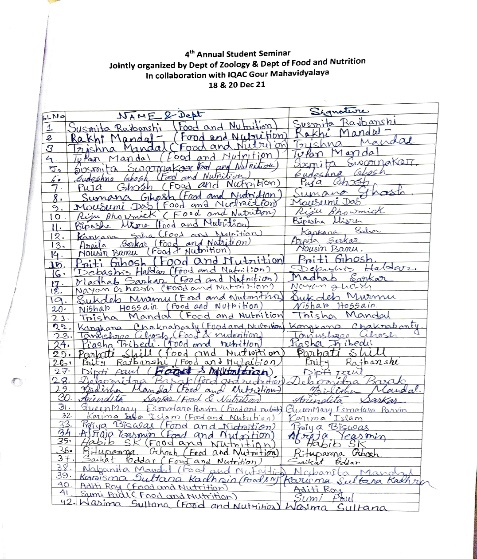 4th Annual Student Seminar
Jointly organized by Dept of Zoology & Dept of Food and Nutrition
In collaboration with IQAC Gour Mahavidyalaya
18 & 20 Dec 21
Sl. No NAME & Dept Signature
1 Susmita Rajbanshi (Food and Nutrition) Susmita Rajbanshi
2 Rakhi Mandal - (Food and Nutrition) Rakhi Mandal -
3 Trishna Mandal (Food and Nutrition) Trishna Mandal
4 Mandal (Food and Nutrition) Mandal
5. Susmita (Food and Nutrition) Susmita
6. Sudeshna Ghosh (Food and Nutrition) Sudeshna Ghosh
7. Puja Ghosh (Food and Nutrition) Puja Ghosh
8. Sumana Ghosh (Food and Nutrition) Sumana Ghosh
9. Mousumi Das (Food and Nutrition) Mousumi Das
10. Riju Bhowmick (Food and Nutrition) Riju Bhowmick
11. Bipasha Misra (Food and Nutrition) Bipasha Misra
12. Kanchana Saha (Food and Nutrition) Kanchana Saha
13. Sarkar (Food and Nutrition) Sarkar
14. (Food & Nutrition)
15. Priti Ghosh (Food and Nutrition) Priti Ghosh.
16. Debasis Halder (Food and Nutrition) Debasis Halder.
17. Madhab Sarkar (Food and Nutrition) Madhab Sarkar
18. Nayan Ghosh (Food and Nutrition) Nayan Ghosh
19. Sukdeb Murmu (Food and Nutrition) Sukdeb Murmu
20. Nishab Hossain (Food and Nutrition) Nishab Hossain
21. Trisha Mandal (Food and Nutrition) Trisha Mandal
22. Kangkana Chakraborty (Food and Nutrition) Kangkana Chakraborty
23. Ghosh (Food & Nutrition) Ghosh
24. Piasha Tribedi (Food and Nutrition) Piasha Tribedi
25. Parbati Shill (Food and Nutrition) Parbati Shill
26. Prity Rajbanshi (Food and Nutrition) Prity Rajbanshi
27 Dipti (Food & Nutrition) Dipti
28. Debarpita (Food and Nutrition) Debarpita
29. Mandal (Food & Nutrition) Mandal
30. Anindita Sarkar (Food & Nutrition) Anindita Sarkar
31. QueenMary Esmotara Parvin (Food and Nutrition) QueenMary Esmotara Parvin
32. Karima Islam (Food and Nutrition) Karima Islam
33. Priya Biswas (Food and Nutrition) Priya Biswas
34 Yeasmin (Food and Nutrition) Yeasmin
35. Habib SK (Food and Nutrition) Habib SK
36. Rituparna Ghosh (Food and Nutrition) Rituparna Ghosh
37. Saikat (Food and Nutrition) Saikat
38. Nabanita Mandal (Food and Nutrition) Nabanita Mandal
39. Karisma Sultana Kadhrin Karisma Sultana Kadhrin
40. Aditi Roy (Food and Nutrition) Aditi Roy
41. Sumi Paul (Food and Nutrition) Sumi Paul
42. Wasima Sultana (Food and Nutrition) Wasima Sultana